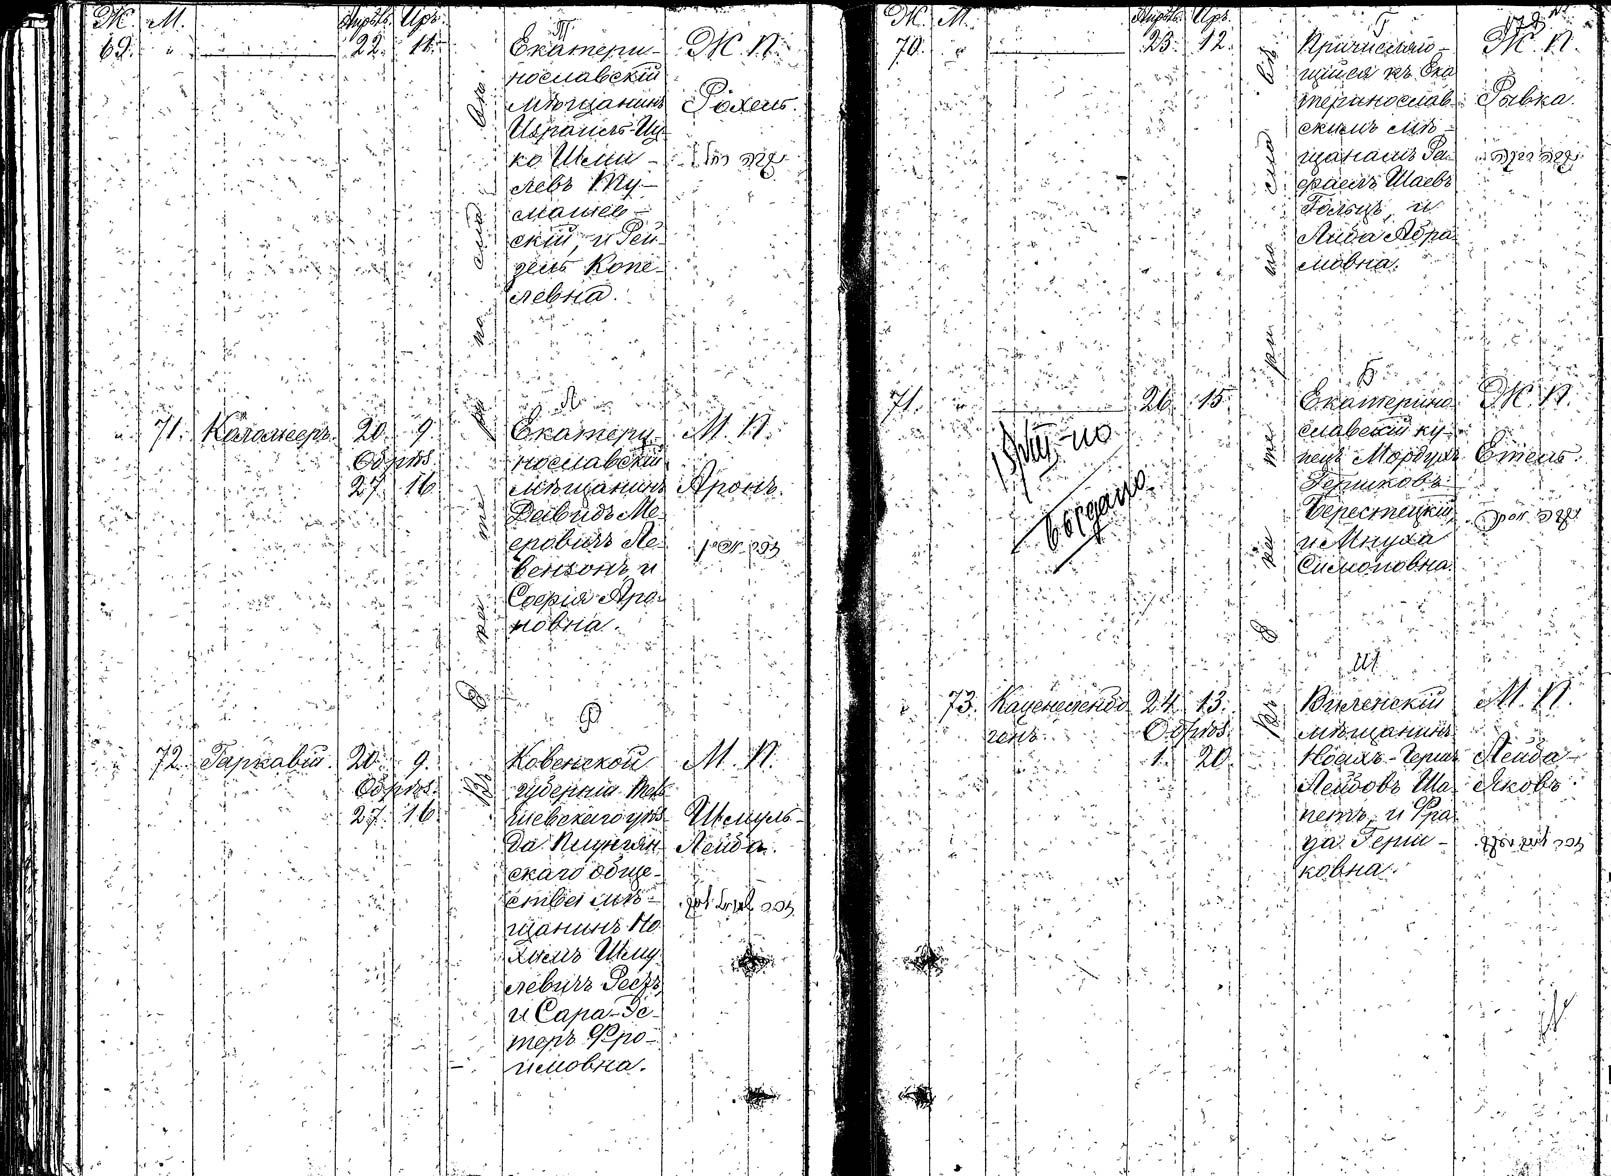 Ж. М. Апрѣль. Іяръ.
69. „ 22. 11.
Т
Екатери-
нославскій
мѣщанинъ
Израиль-Иц-
ко Шми-
левъ Ту-
машев-
скій, и Рей-
зель Копе-
левна.
Ж. П.
Рохель.
„ 71. Коломееръ. 20. 9.
Обрѣз.
27. 16.
Л
Екатери-
нославскій
мѣщанинъ
Давидъ Ме-
еровичъ Ле-
вензонъ и
Софія Аро-
новна.
М. П.
Аронъ.
„ 72. Гаркавій. 20. 9.
Обрѣз.
27. 16.
Р
Ковенской
губерніи Тель-
шевскаго уѣз-
да Плунгян-
скаго обще-
ства мѣ-
щанинъ Но-
химъ Шму-
левичъ Ресъ,
и Сара-Эс-
теръ Фро-
имовна.
М. П.
Шмуль-
Лейба.
Въ Екатеринославѣ
Ж. М. Апрѣль. Іяръ.
70. „ 23. 12.
Г
Причисляю-
щійся къ Ека-
теринослав-
скимъ мѣ-
щанамъ Ра-
фаелъ Шаевъ
Гольцъ, и
Либа Абра-
мовна.
Ж. П.
Рывка.
71. „ 26. 15.
Выдано
Б
Екатерино-
славскій ку-
пецъ Мордухъ
Гершковъ
Берестецкій,
и Мнуха
Симоновна.
Ж. П.
Етель.
„ 73. Каценеленбо-
генъ. 24. 13.
Обрѣз.
1. 20.
Ш
Виленскій
мѣщанинъ
Ноахъ-Гершъ
Лейбовъ Ша-
петъ, и Фра-
да Герш-
ковна.
М. П.
Лейба-
Яковъ.
Въ Екатеринославѣ